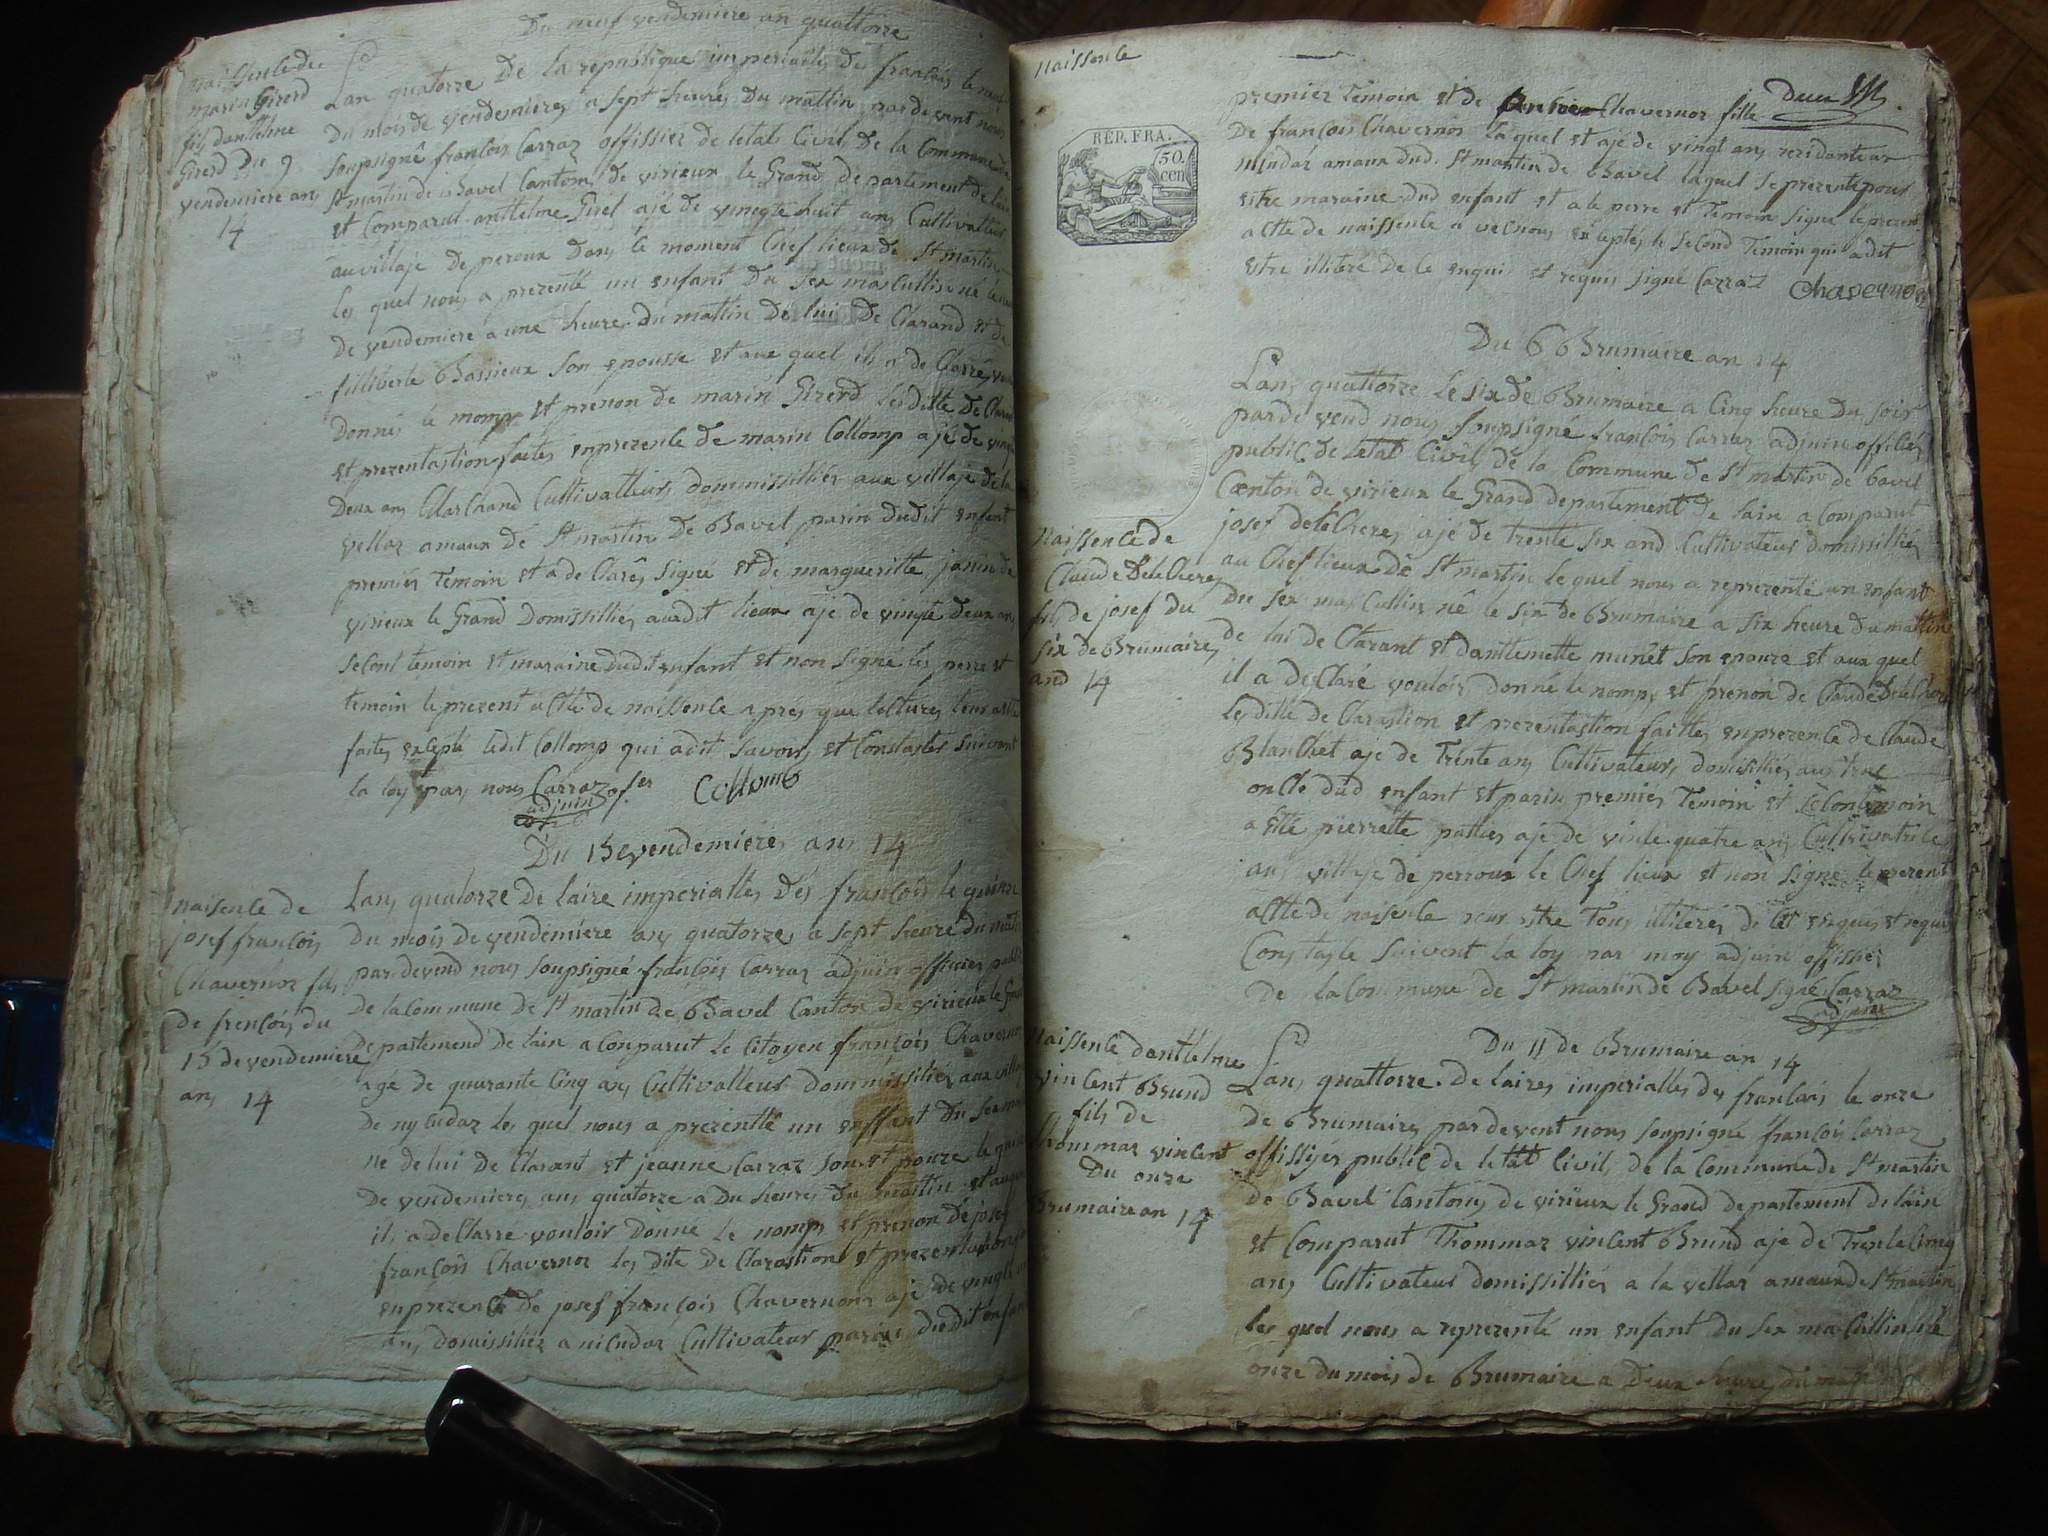 Du neuf vendemiere an quattorze
naissence de
marin Girerd
fils dantelme
Girerd Du 9
vendemiere an
14
Lan quatorze De la republique imperialle de francois le neuf
Du mois de vendemiere a sept heure Du mattin par devent nous
soupsigné francois Carraz offissier de letat Civil de la Commune de
St martin de Bavel Canton de virieux le Grand departement de lain
et Comparut anttelme Girel ajé de vingte huit ans Cultivatteur
au villaje de peroux dans le moment Chef lieux de St martin
les quel nous a prezenté un enfant Du sex masCullin né le neuf
De vendemiere a une heure du mattin de lui De Clarand et de
filliberte Bassieux son epousse et aux quel il a de Clarré vouloir
Donné le nomps et prenon de marin Girerd les ditte de Clarastion
et prezentastion faites enprezence de marin Collomp ajé de vingte
Deux ans Marchand Cultivatteur dommissillier aux villaje de la
vellaz amaux de St martin De Bavel parin dudit enfant
premier Temoin et a de Claré signé et de margueritte janin de
virieux le Grand Domissillier auxdit lieux ajé de vingte Deux ans
second temoin et maraine dudit enfant et non signé les perre et
temoin le prezent actte de naissence aprés que lectture leur a été
faites excepté ledit Collomp qui a dit savoir et Constaster suivant
la loy par nous Carraz ofer Collomb
adjuin
Du 15 vendemiere an 14
naisence de
josef francois
Chavernoz fils
de francois du
15 de vendemiere
an 14
Lans quatorze de laire imperialles Dés francois le quinze
Du mois de vendemiere ans quatorze a sept heure du mattin
par devend nous soupsigné francois Carraz adjuin officier public
de la Commune de St martin de Bavel Canton de virieux le Grand
De partemend de lain a Conparut le Citoyen francois Chavernoz
agé de quarante Cinq ans Cultivatteur dommissilier aux villaje
De nycudaz les quel nous a prezentté un enffant Du sex mas
né de lui de Clarant et jeanne Carraz son epouze le quinze
De vendemiere ans quatorze a Du heure du mattin et auquel
il a deClarré vouloir donné le nomps et prenon de josef
francois Chavernoz les dite de Clarastion et prezentastion
enprezence de josef francois Chavernoz ajé de vingte
ans domissilié a nicudaz Cultivateur parin dudit enfant
naissence
REP. FRA.
50
cen
Deux
premier temoin et de Chavernoz fille
De francois Chavernoz laquel et ajé de vingt ans rezidante a
amaux dud. St martin de Bavel laquel se prezente pour
estre maraine dud enfant et a le perre et Temoin signé le prezent
actte de naissence avec nous exceptés le second Temoin qui a dit
estre illitéré de le enquis et requis signé Carraz Chavernoz
Du 6 Brumaire an 14
Naissence de
Claude Delechere
fils de josef du
six de Brumaire
and 14
Lans quattorze le six de Brumaire a Cinq heure Du soir
par de vend nous soupsigné francois Carraz adjuin officier
public de letat Civil de la Commune de St martin de bavel
Canton de virieux le Grand departement de lain a Comparut
josef delechere ajé de trente six and Cultivateur domissilliér
au Chef lieux de St martin le quel nous a reprezenté un enfant
Du sex masCullin né le six de Brumaire a six heure du mattin
de lui de Clarant et danttemette munêt son epouze et aux quel
il a deClaré vouloir donné le nomps et prenon de Claude Delechere
les ditte de Clarastion et prezentastion faittes enprezence de Claude
Blanchet ajé de Trente ans Cultivateur domisillié aux
oncle dud enfant et parin premier Temoin et secon temoin
a été pierrette pattier ajé de vinte quatre ans Cultivatrice
aux villaje de perroux le Chef lieux et non signé le prezent
actte de naisence pour estre Tous illitérés de let enquis et requis
Constasté suivent la loy par moy adjuin offissier
de la Commune de St martin de Bavel signé Carraz
adjuin
Du 11 de Brumaire an 14
Naissence danttelme
vincent Brund
fils de
thommaz vincent
Du onze
Brumaire an 14
Lans quattorze De laires imperialles des francois le onze
de Brumaire par devent nous soupsigné francois Carraz
offissiér public de letat Civil de la Commune de St martin
de Bavel Canton de virieux le Grand departement de lain
et Comparut Thommaz vincent Brund ajé de Trente Cinq
ans Cultivateur domissillié a la vellaz amaux de St martin
les quel nous a reprezenté un enfant Du sex masCullin né
onze du mois de Brumaire a Deux heure du matin